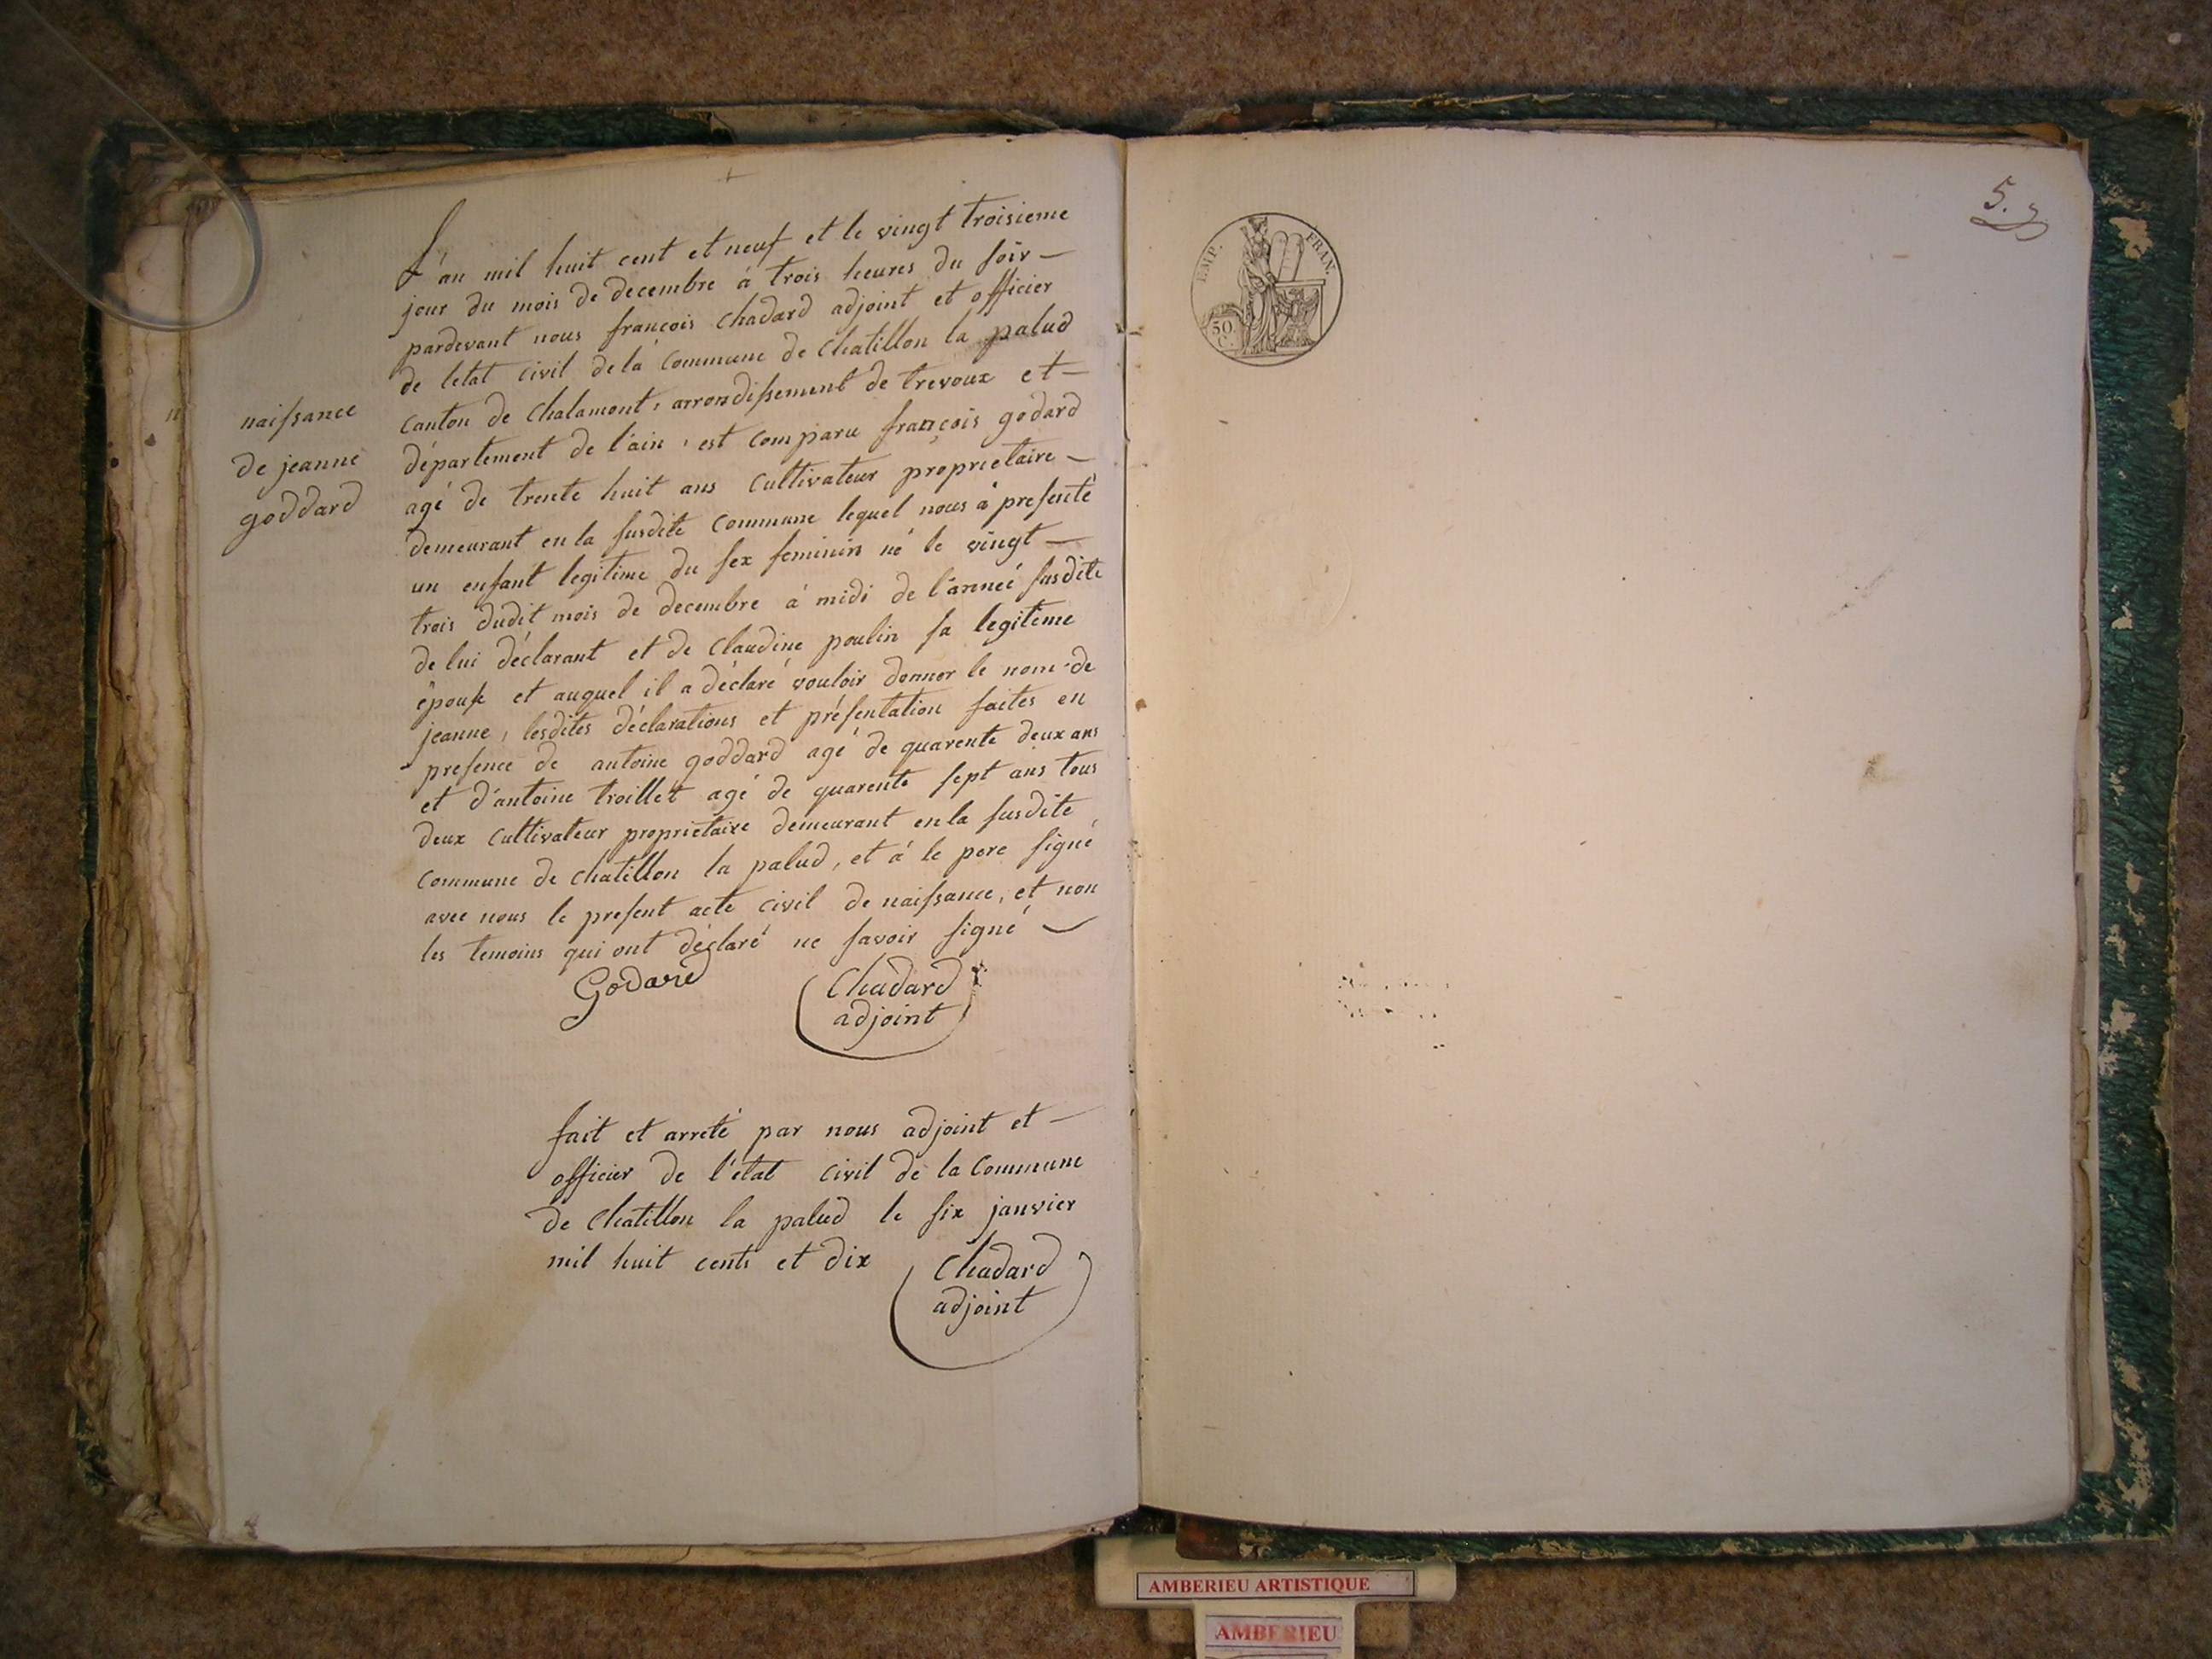 naissance
de jeanne
goddard
L'an mil huit cent et neuf et le vingt troisieme
jour du mois de decembre á trois heures du soir —
pardevant nous françois Chadard adjoint et officier
de letat civil de la Commune de Chatillon la palud
Canton de Chalamont, arrondissement de trevoux et —
département de l'ain, est comparu françois godard
agé de trente huit ans Cultivateur proprietaire —
demeurant en la susdite Commune lequel nous á presenté
un enfant legitime du sex feminin né le vingt —
trois dudit mois de decembre á midi de l'anneé susdite
de lui déclarant et de Claudine poulin sa legitime
épouse et auquel il a déclaré vouloir donner le nom de
jeanne, lesdites déclarations et présentation faites en
presence de antoine goddard agé de quarente deux ans
et d'antoine troillet agé de quarente sept ans tous
deux Cultivateur proprietaire demeurant en la susdite
Commune de chatillon la palud, et á le pere signé
avec nous le present acte civil de naissance, et non
les temoins qui ont déclaré ne savoir signé —
Godard
Chadard
adjoint
fait et arreté par nous adjoint et —
officier de l'état civil de la Commune
de Chatillon la palud le six janvier
mil huit cents et dix
Chadard
adjoint
5.
EMP. FRAN.
50
C.
AMBERIEU ARTISTIQUE
AMBERIEU